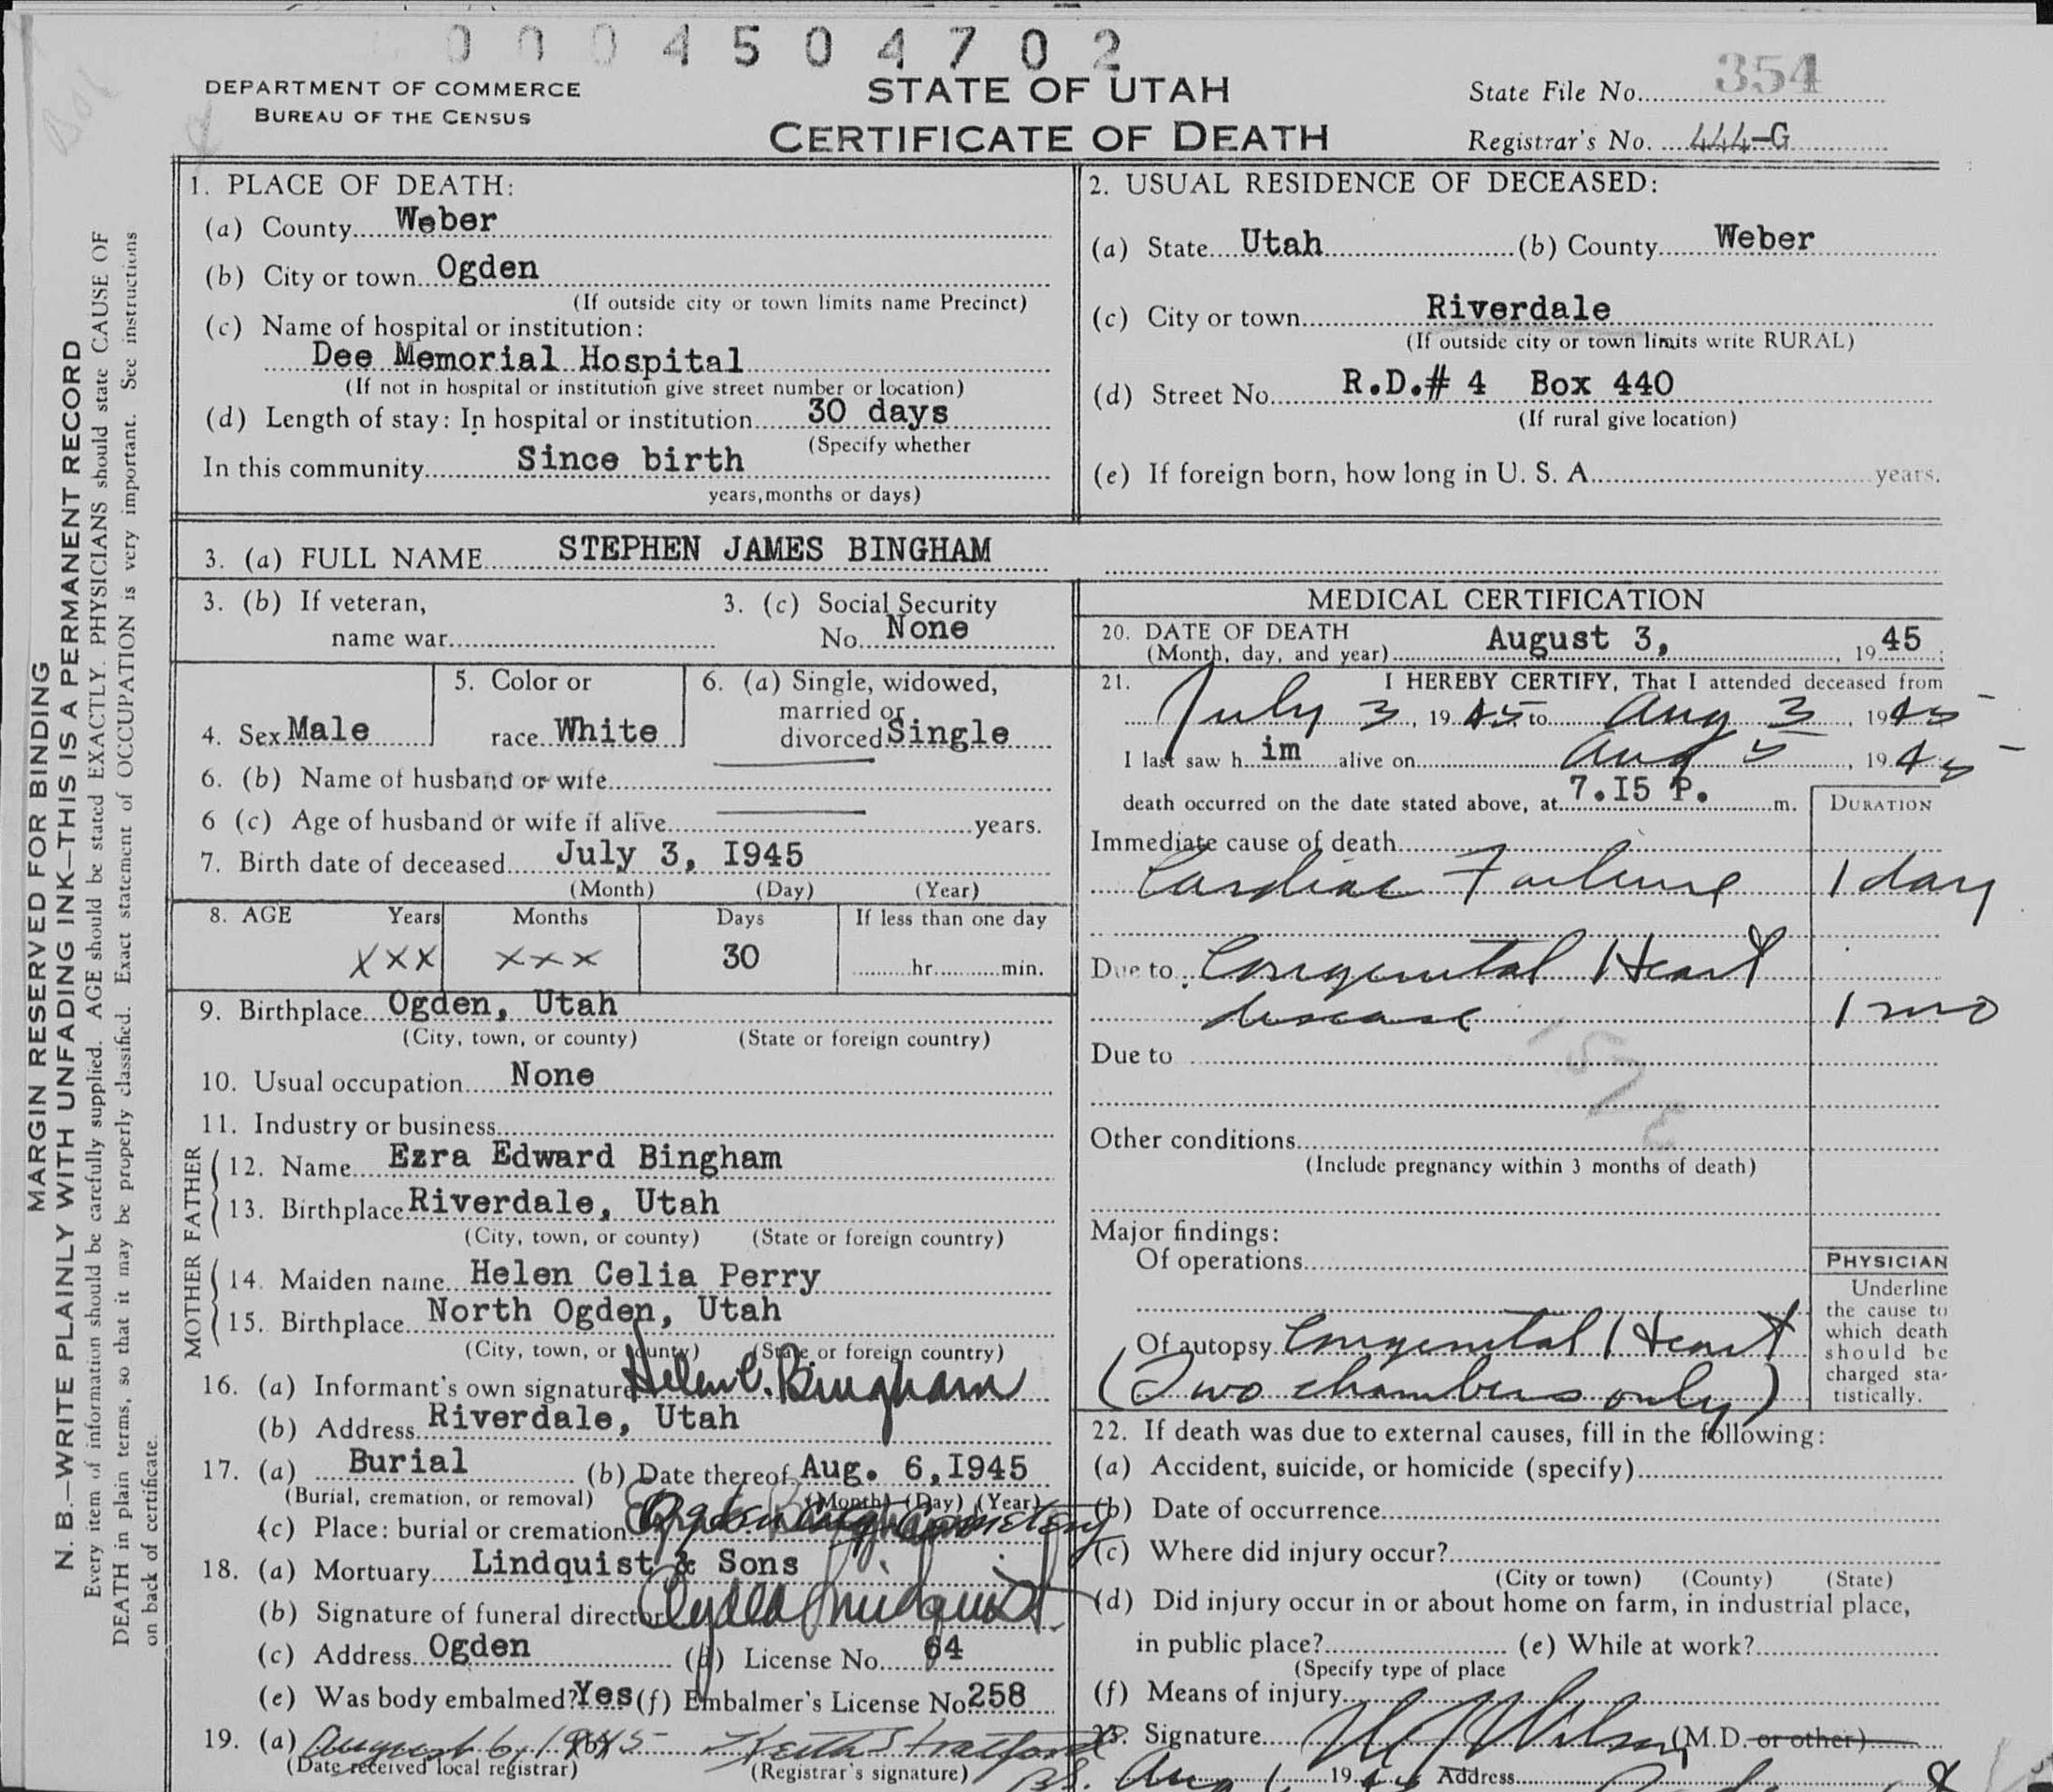 0004504702
DEPARTMENT OF COMMERCE
BUREAU OF THE CENSUS
STATE OF UTAH
CERTIFICATE OF DEATH
State File No. 354
Registrar's No. 444-G
MARGIN RESERVED FOR BINDING
N. B.—WRITE PLAINLY WITH UNFADING INK—THIS IS A PERMANENT RECORD
Every item of information should be carefully supplied. AGE should be stated EXACTLY. PHYSICIANS should state CAUSE OF
DEATH in plain terms, so that it may be properly classified. Exact statement of OCCUPATION is very important. See instructions
on back of certificate.
1. PLACE OF DEATH:
(a) County Weber
(b) City or town Ogden
(If outside city or town limits name Precinct)
(c) Name of hospital or institution:
Dee Memorial Hospital
(If not in hospital or institution give street number or location)
(d) Length of stay: In hospital or institution 30 days
(Specify whether
In this community Since birth
years, months or days)
2. USUAL RESIDENCE OF DECEASED:
(a) State Utah (b) County Weber
(c) City or town Riverdale
(If outside city or town limits write RURAL)
(d) Street No. R.D.# 4 Box 440
(If rural give location)
(e) If foreign born, how long in U. S. A. years.
3. (a) FULL NAME STEPHEN JAMES BINGHAM
3. (b) If veteran,
name war
3. (c) Social Security
No. None
4. Sex Male
5. Color or
race White
6. (a) Single, widowed,
married or
divorced Single
6. (b) Name of husband or wife
6 (c) Age of husband or wife if alive years.
7. Birth date of deceased July 3, I945
(Month) (Day) (Year)
8. AGE Years Months Days If less than one day
XXX XXX 30 hr. min.
9. Birthplace Ogden, Utah
(City, town, or county) (State or foreign country)
10. Usual occupation None
11. Industry or business
FATHER
12. Name Ezra Edward Bingham
13. Birthplace Riverdale, Utah
(City, town, or county) (State or foreign country)
MOTHER
14. Maiden name Helen Celia Perry
15. Birthplace North Ogden, Utah
(City, town, or county) (State or foreign country)
16. (a) Informant's own signature Helen C. Bingham
(b) Address Riverdale, Utah
17. (a) Burial (b) Date thereof Aug. 6, I945
(Burial, cremation, or removal) (Month) (Day) (Year)
(c) Place: burial or cremation Ogden City Cemetery
18. (a) Mortuary Lindquist & Sons
(b) Signature of funeral director Clyde Lindquist
(c) Address Ogden (d) License No. 64
(e) Was body embalmed? Yes (f) Embalmer's License No. 258
19. (a) August 6, 1945 Keith Stratford
(Date received local registrar) (Registrar's signature)
MEDICAL CERTIFICATION
20. DATE OF DEATH
(Month, day, and year) August 3, 1945
21. I HEREBY CERTIFY, That I attended deceased from
July 3, 1945 to Aug 3, 1945
I last saw him alive on Aug 1945
death occurred on the date stated above, at 7.I5 P. m.
DURATION
Immediate cause of death
Cardiac Failure 1 day
Due to Congenital Heart
disease 1 mo
Due to
Other conditions
(Include pregnancy within 3 months of death)
Major findings:
Of operations
Of autopsy Congenital Heart
(Two chambers only)
PHYSICIAN
Underline
the cause to
which death
should be
charged sta-
tistically.
22. If death was due to external causes, fill in the following:
(a) Accident, suicide, or homicide (specify)
(b) Date of occurrence
(c) Where did injury occur?
(City or town) (County) (State)
(d) Did injury occur in or about home on farm, in industrial place,
in public place? (e) While at work?
(Specify type of place
(f) Means of injury
23. Signature Wilson (M.D. or other)
Aug 19 Address